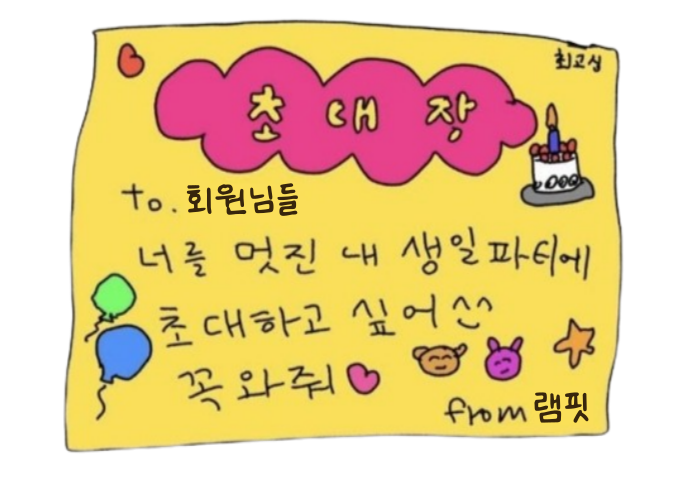 최고심
초대장
to. 회원님들
너를 멋진 내 생일파티에
초대하고 싶어^^
꼭 와줘
from 램핏